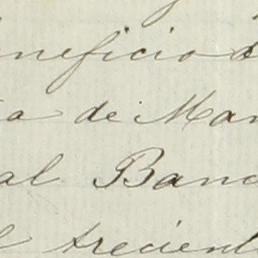 neficio d
a de Man
al Banc
l trecient